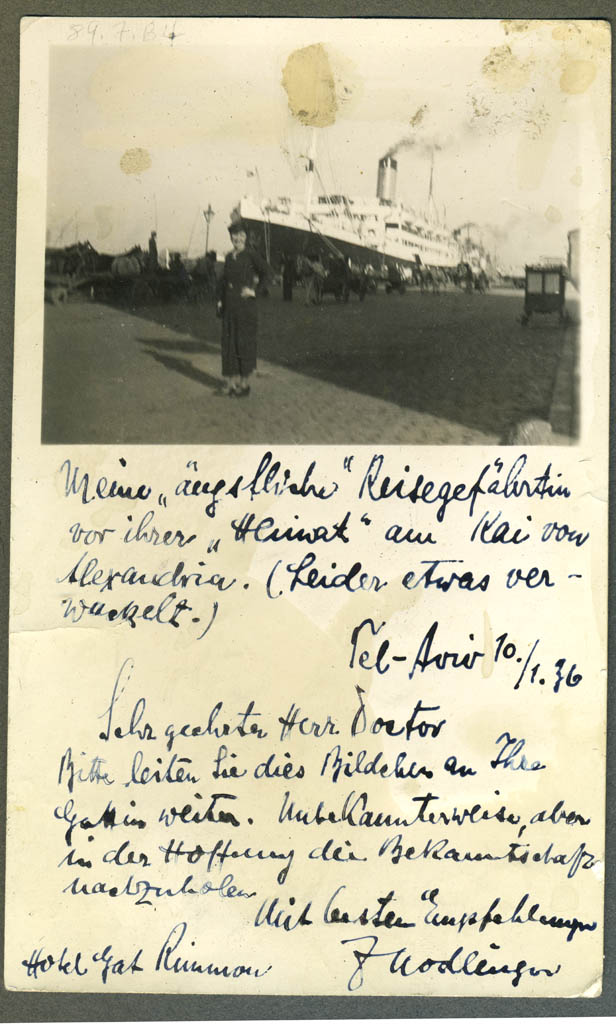 89.7.B4
Meine „ängstliche“ Reisegefährtin
vor ihrer „Heimat“ am Kai von
Alexandria. (Leider etwas ver-
wackelt.)
Tel-Aviv 10./1.36
Sehr geehrter Herr Doctor
Bitte leiten Sie dies Bildchen an Ihre
Gattin weiter. Unbekannterweise, aber
in der Hoffnung die Bekanntschaft
nachzuholen
Mit besten Empfehlungen
Hotel Gat Rimmon